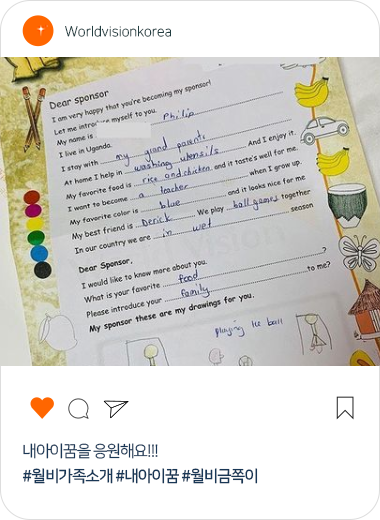 Worldvisionkorea
Dear sponsor
I am very happy that you're becoming my sponsor!
Let me introduce myself to you.
My name is Philip
I live in Uganda.
I stay with my grand parents
At home I help in washing utensils And I enjoy it.
My favorite food is rice and chicken and it taste's well for me.
I want to become a teacher when I grow up.
My favorite color is blue and it looks nice for me
My best friend is Derick We play ball games together
In our country we are in wet season
Dear Sponsor,
I would like to know more about you.
What is your favorite food ?
Please introduce your family to me?
My sponsor these are my drawings for you.
playing the ball
내아이꿈을 응원해요!!!
#월비가족소개 #내아이꿈 #월비금쪽이